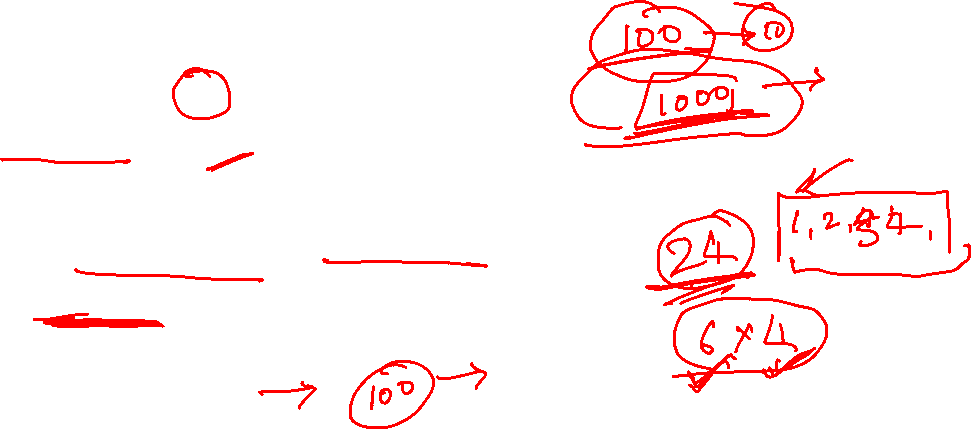 100 → 10
1000 →
1, 2, 3 4,
24
6 × 4
→ 100 →